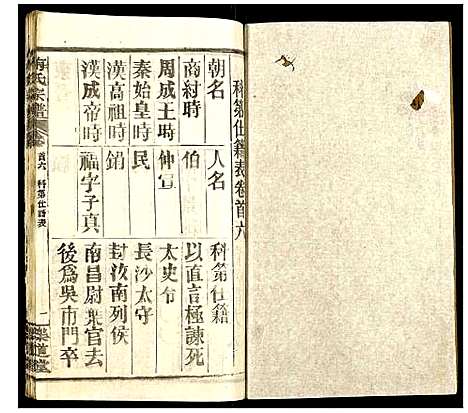 科第仕籍表卷首六
朝名　人名　科第仕籍
商紂時　伯　以直言極諫死
周成王時　仲宣　太史令
秦始皇時　民　長沙太守
漢高祖時　鋗　封汝南列侯
漢成帝時　福字子真　南昌尉棄官去
後爲吳市門卒
梅氏宗譜　卷　首六　科第仕籍表　一　樂道堂